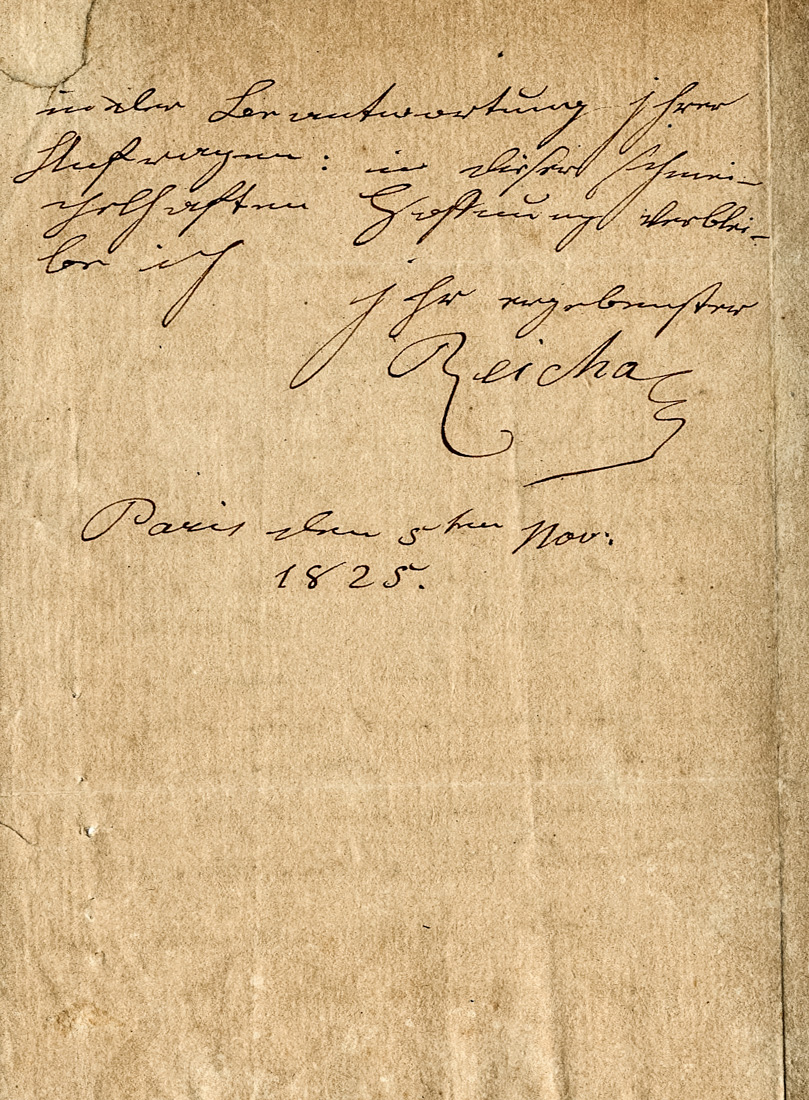 in der Beantwortung jhrer
Anfragen: in dieser schmei-
chelhaften Hoffnung verblei-
be ich
jhr ergebenster
Reicha
Paris den 5ten Nov:
1825.